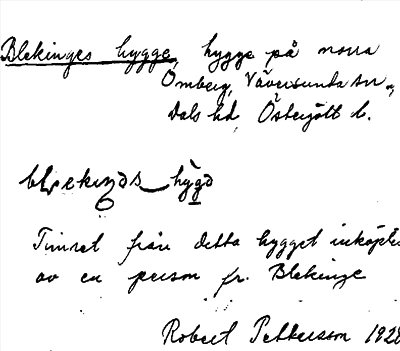 Blekinges hygge, hygge på norra
Omberg, Väversunda sn.,
Dals hd, Östergötl l.
Timret från detta hygget inköptes
av en person fr. Blekinge
Robert Pettersson 1928